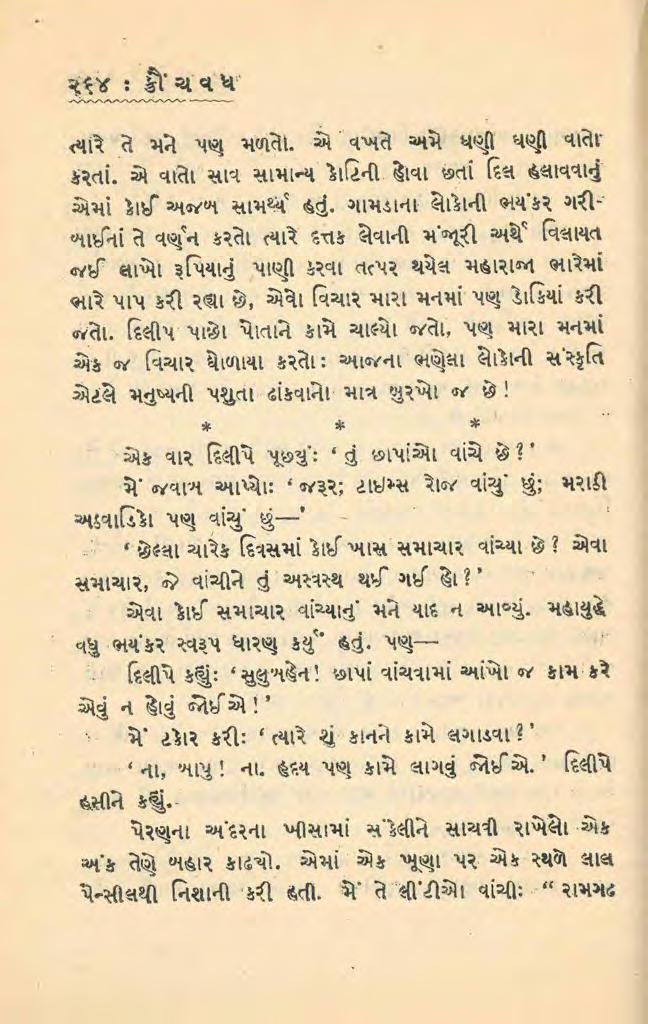 ૨૬૪ : ક્રૌંચવધ
ત્યારે તે મને પણ મળતો. એ વખતે અમે ઘણી ઘણી વાતો
કરતાં. એ વાતો સાવ સામાન્ય કોટિની હોવા છતાં દિલ હલાવવાનું
એમાં કોઈ અજબ સામર્થ્ય હતું. ગામડાના લોકોની ભયંકર ગરી-
બાઈનાં તે વર્ણન કરતો ત્યારે દત્તક લેવાની મંજૂરી અર્થે વિલાયત
જઈ લાખો રૂપિયાનું પાણી કરવા તત્પર થયેલ મહારાજા ભારેમાં
ભારે પાપ કરી રહ્યા છે, એવો વિચાર મારા મનમાં પણ ડોકિયાં કરી
જતો. દિલીપ પાછો પોતાને કામે ચાલ્યો જતો, પણ મારા મનમાં
એક જ વિચાર ઘોળાયા કરતો: આજના ભણેલા લોકોની સંસ્કૃતિ
એટલે મનુષ્યની પશુતા ઢાંકવાનો માત્ર બુરખો જ છે!
* * *
એક વાર દિલીપે પૂછ્યું: ‘તું છાપાંઓ વાંચે છે?’
મેં જવાબ આપ્યો: ‘જરૂર; ટાઇમ્સ રોજ વાંચું છું; મરાઠી
અઠવાડિકો પણ વાંચું છું—’
‘છેલ્લા ચારેક દિવસમાં કોઈ ખાસ સમાચાર વાંચ્યા છે? એવા
સમાચાર, જે વાંચીને તું અસ્વસ્થ થઈ ગઈ હો?’
એવા કોઈ સમાચાર વાંચ્યાનું મને યાદ ન આવ્યું. મહાયુદ્ધે
વધુ ભયંકર સ્વરૂપ ધારણ કર્યું હતું. પણ—
દિલીપે કહ્યું: ‘સુલુબહેન! છાપાં વાંચવામાં આંખો જ કામ કરે
એવું ન હોવું જોઈએ!’
મેં ટકોર કરી: ‘ત્યારે શું કાનને કામે લગાડવા?’
‘ના, બાપુ! ના. હૃદય પણ કામે લાગવું જોઈએ.’ દિલીપે
હસીને કહ્યું.
પેરણના અંદરના ખીસામાં સંકેલીને સાચવી રાખેલો એક
અંક તેણે બહાર કાઢ્યો. એમાં એક ખૂણા પર એક સ્થળે લાલ
પેન્સીલથી નિશાની કરી હતી. મેં તે લીંટીઓ વાંચી: “રામગઢ